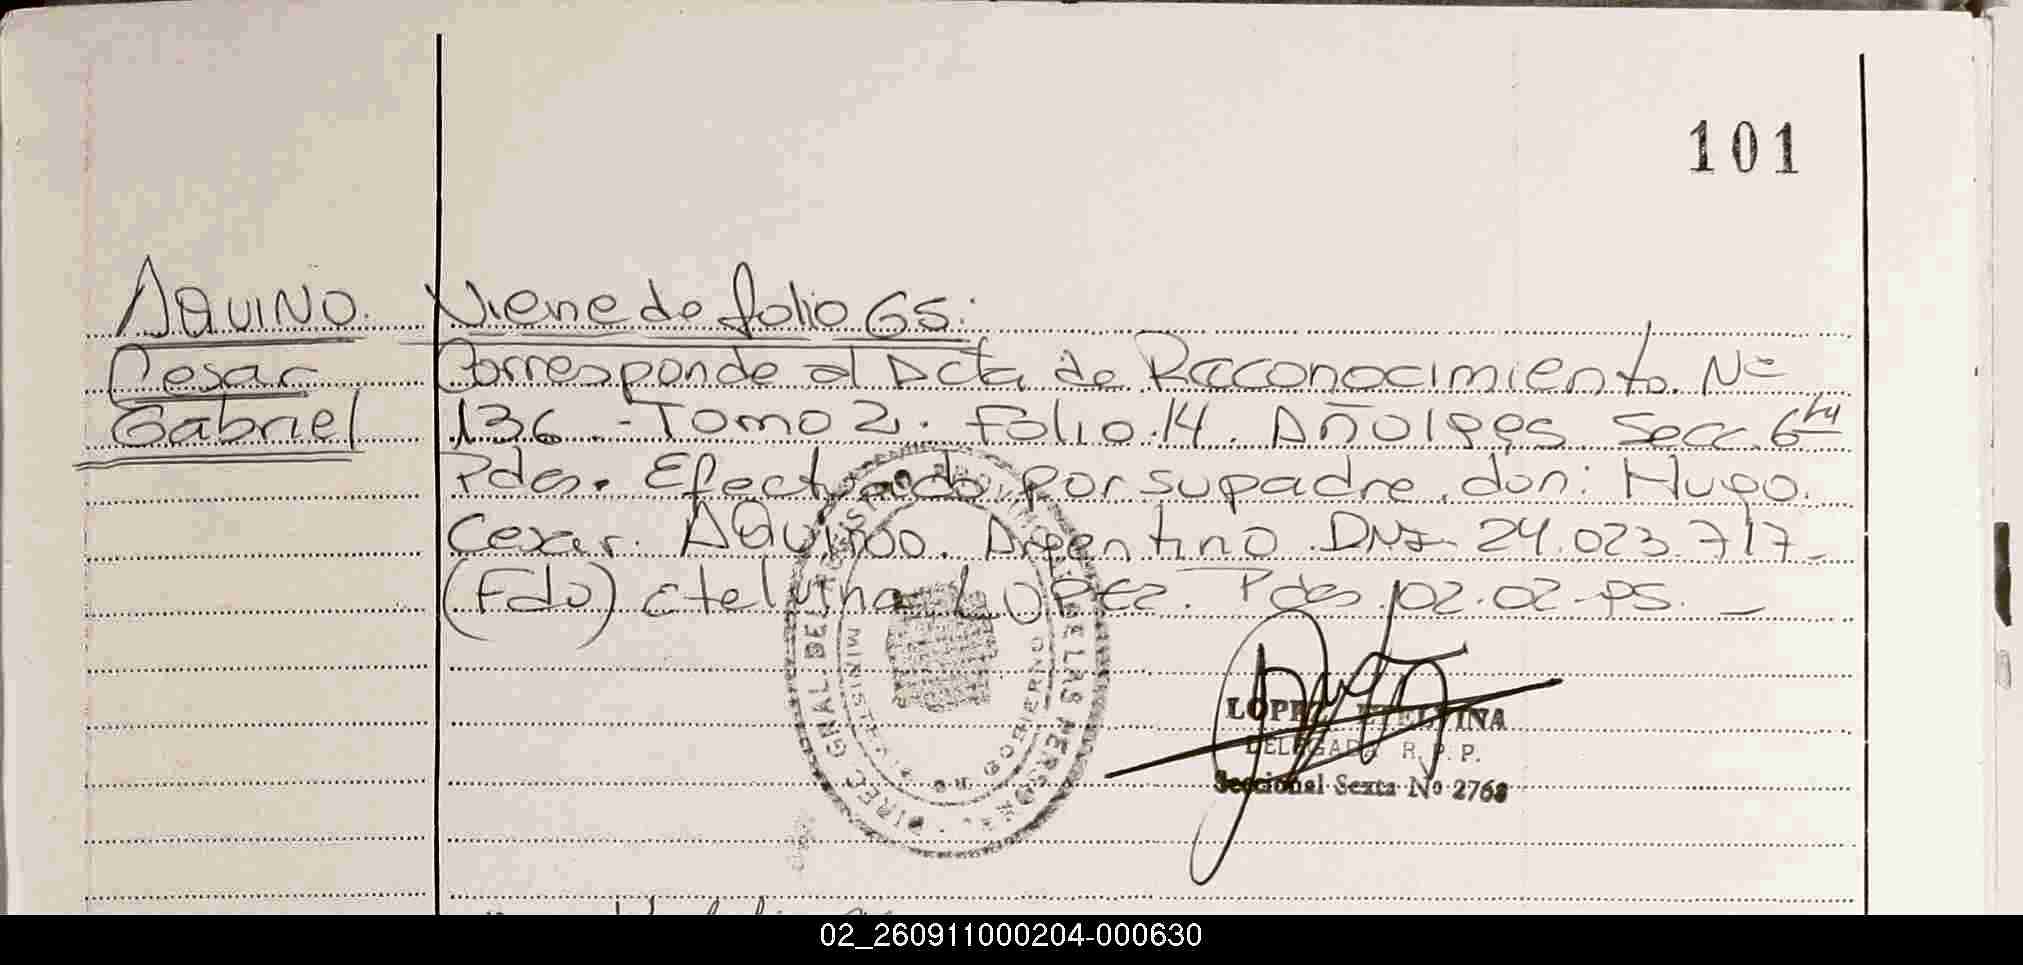 101
AQUINO. Viene de folio 65:
Cesar Corresponde al Acta de Reconocimiento. Nº
Gabriel 136 - Tomo 2. Folio 14. Año 1995 Secc. 6ta
Pdas. Efectuado por su padre don: Hugo.
Cesar. AQuino. Argentino. DNI 24.023.717-
(Fdo) Etelvina LOPEZ. Pdas. 02.02-95. -
DIREC. GRAL. DE
DE LAS PERSONAS
MINISTERIO DE GOBIERNO
LOPEZ ETELVINA
DELEGADA R. P. P.
Seccional Sexta Nº 2768
02_260911000204-000630